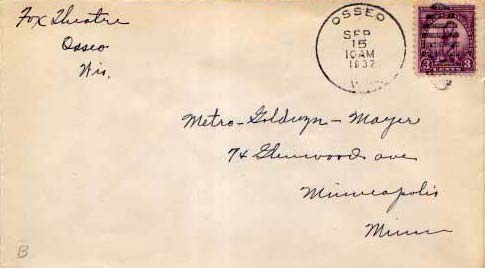 Fox Theatre
Osseo
Wis.
OSSEO
SEP
15
10AM
1932
WIS.
3 CENTS 3
Metro-Goldwyn-Mayer
74 Glenwood ave
Minneapolis
Minn
B